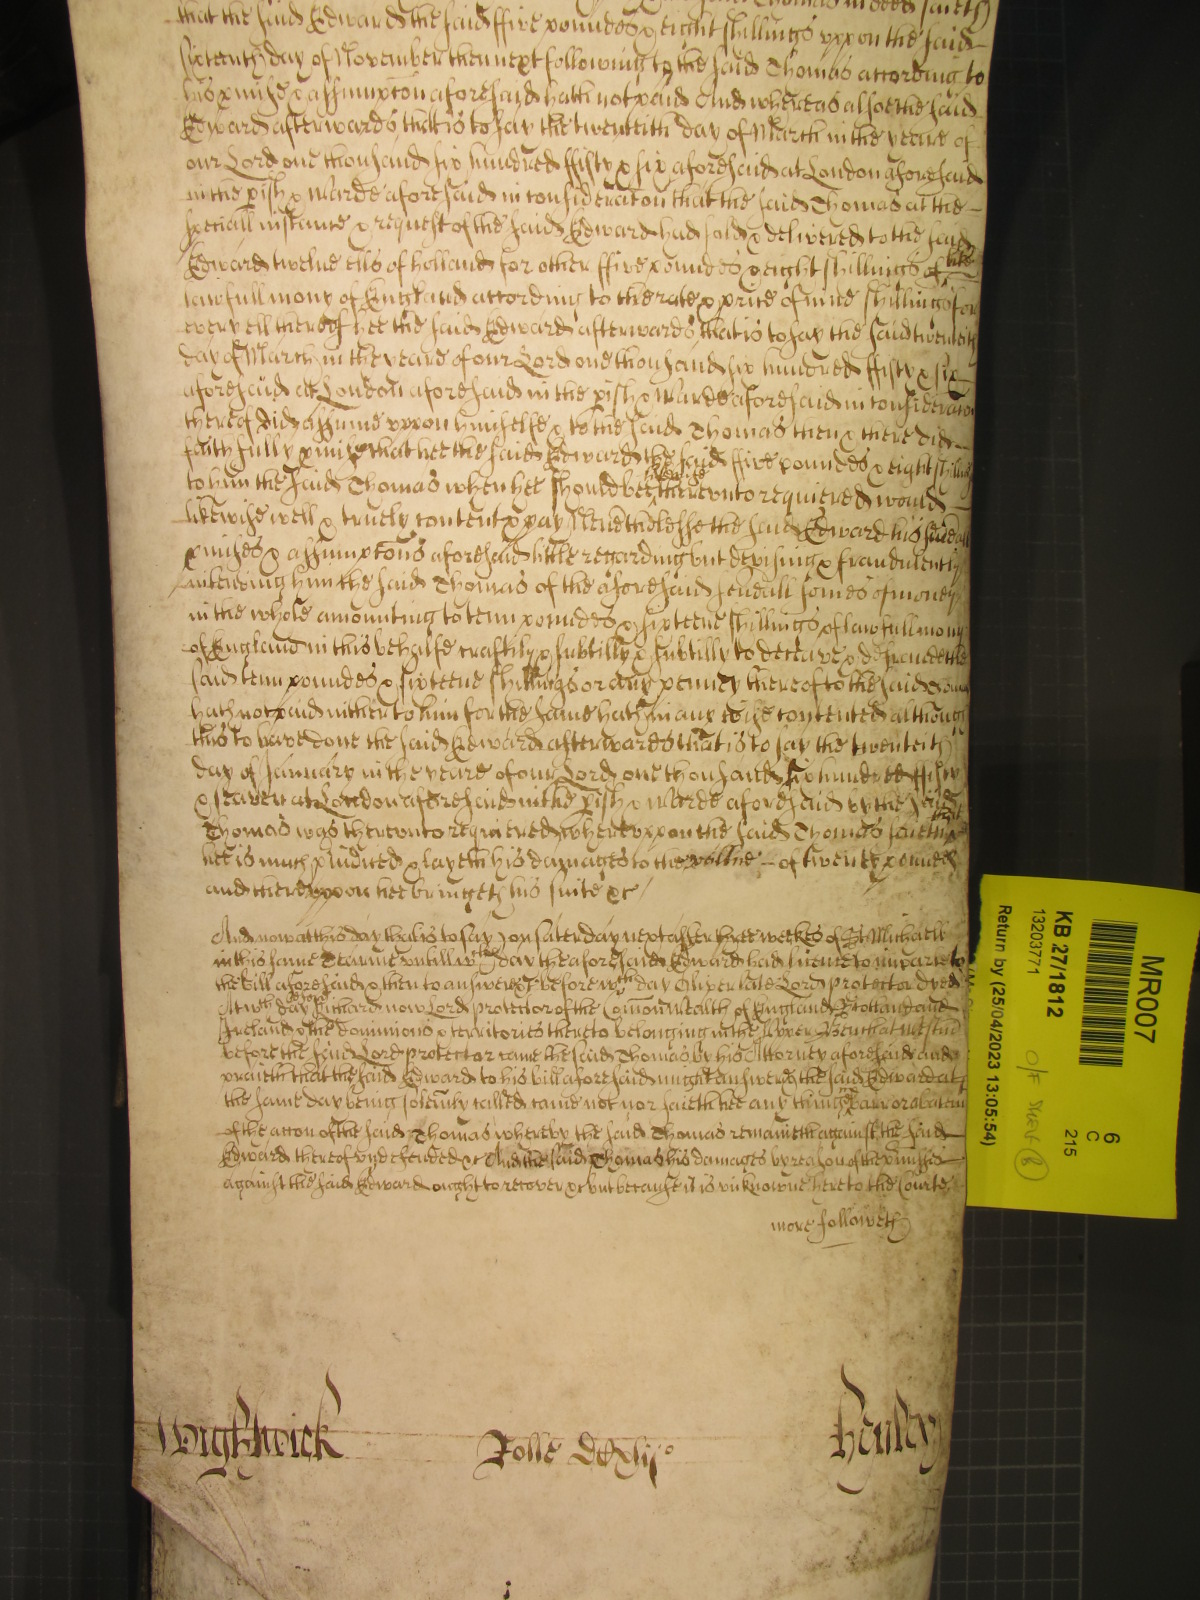 that the said Edward the said ffive poundes & eight shillings vppon the said
sixteenth day of November then next following to the said Thomas according to
his pmise & assumpton aforesaid hath not paid And whereas alsoe the said
Edward afterwards that is to say the twentith day of March in the yeare of
our Lord one thousand six hundred ffifty & six aforesaid at London aforesaid
in the pish & Warde aforesaid in consideraton that the said Thomas at the
speciall instance & request of the said Edward had sold & delivered to the said
Edward twelve ells of holland for other ffive poundes & eight shillings of like
lawfull mony of England according to the rate & price of nine shillings for
every ell thereof hee the said Edward afterwards that is to say the said twentith
day of March in the yeare of our Lord one thousand six hundred ffifty & six
aforesaid at London aforesaid in the pish & Warde aforesaid in consideraton
thereof did assume vppon himselfe & to the said Thomas then & there did
faithfully pmise that hee the said Edward the said ffive poundes & eight shillings
to him the said Thomas when hee should bee therevnto requiered would
likewise well & truely content & pay Neverthelesse the said Edward his severall
pmises & assumptons aforesaid little regarding but devising & fraudulently
intending him the said Thomas of the aforesaid severall somes of money
in the whole amounting to tenn poundes & sixteene shillings of lawfull mony
of England in this behalfe craftily & subtilly & subtilly to deceave & defraude the
said tenn poundes & sixteene shillings or any penney thereof to the said Thomas
hath not paid nither to him for the same hath in any wise contented although
this to have done the said Edward afterwards that is to say the twentith
day of January in the yeare of our Lord one thousand six hundred ffifty
& seaven at London aforesaid in the pish & Warde aforesaid by the said
Thomas was therevnto requiered wherevppon the said Thomas saieth that
hee is much piudiced & layeth his damages to the vallue of twenty poundes
and therevppon hee bringeth his suite &c
And now at this day that is to say on Saterday next after three weekes of St Michaell
in this same Tearme vntill wch day the aforesaid Edward had licence to imparle to
the bill aforesaid & then to answere &c before wch day Oliver late Lord protector dyed
At wch day before Richard now Lord protector of the Comonwealth of England Scotland and
Ireland & the dominions & territories thereto belonging in the Vpper Bench at Westmr
before the said Lord protector came the said Thomas by his Attorney aforesaid and
prayeth that the said Edward to his bill aforesaid might answere & the said Edward at
the same day being solemly called came not nor saieth hee any thing in barr or abatemt
of the accon of the said Thomas whereby the said Thomas remaineth against the said
Edward thereof vndefended &c And the said Thomas his damages by reason of the pmisses
against the said Edward ought to recover &c but because it is vnknowne here to the Courte
more followeth
Wightwick
Rolle
Henley
MR007
6
C
215
KB 27/1812
13203771
O/F
Return by (25/04/2023 13:05:54)